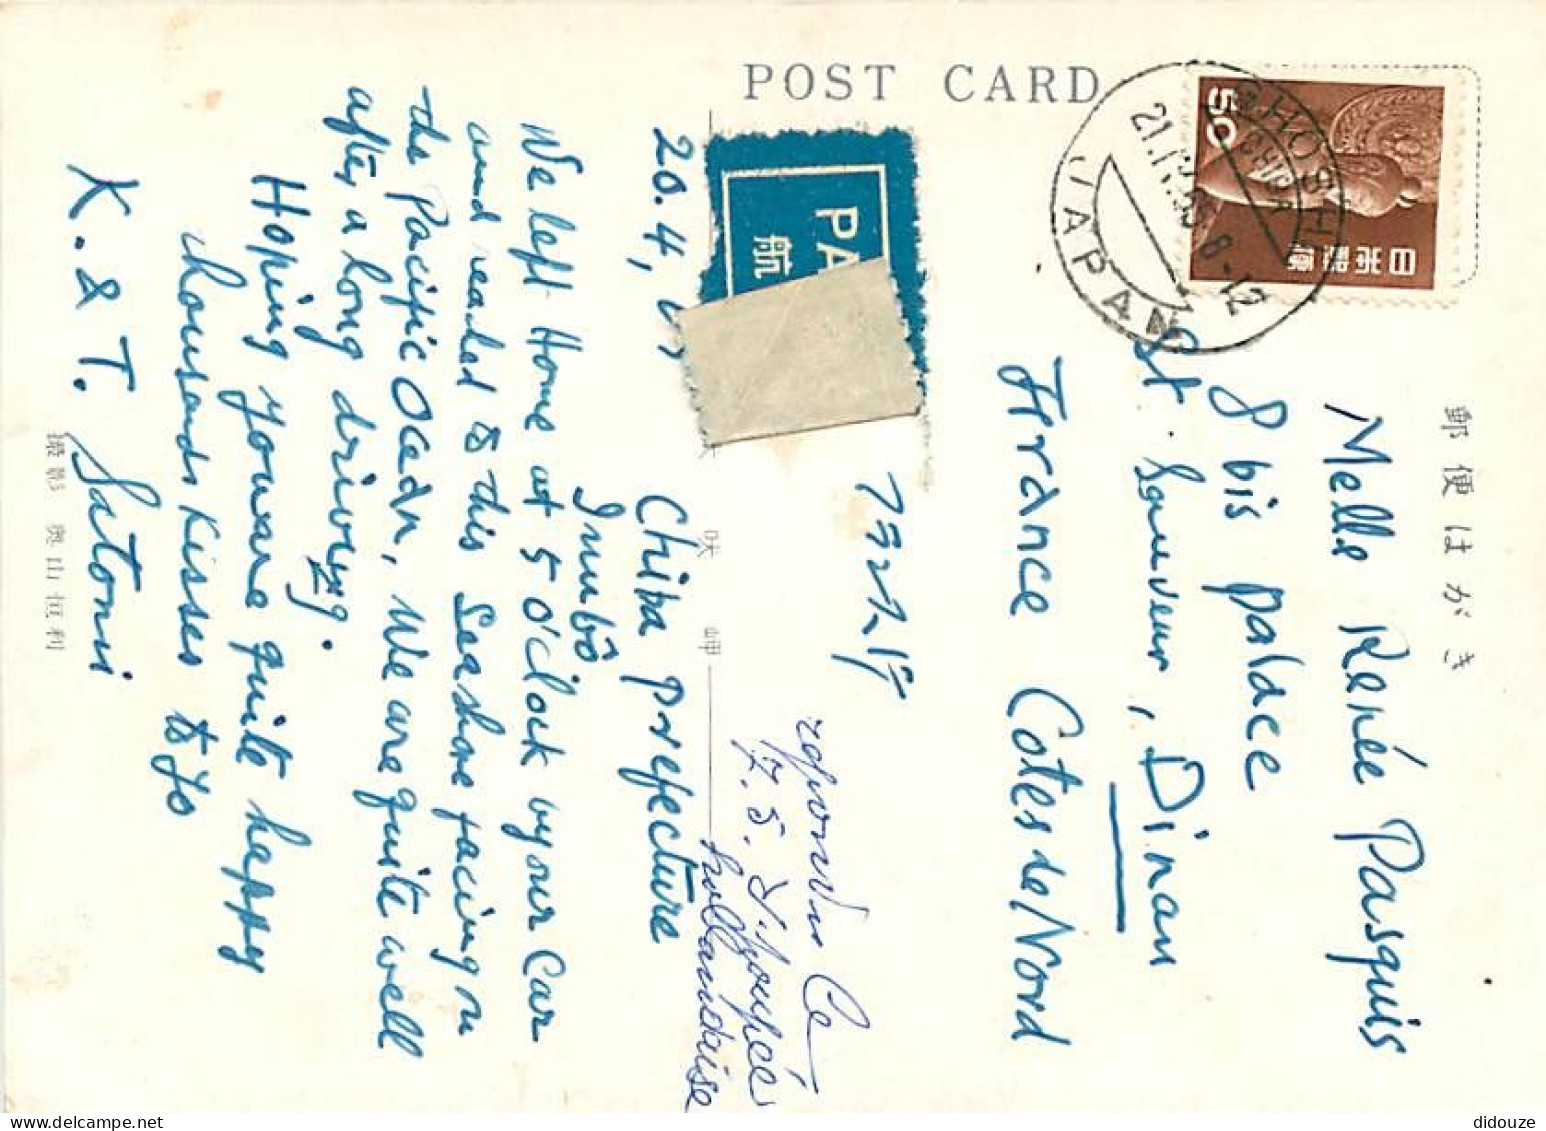 POST CARD
郵便はがき
50
日本郵便
CHOSHI
CHIBA
JAPAN
21. IV. 65 8-12
PA
航
20. 4,
Chiba prefecture
Inubô
We left Home at 5 o'clock by our Car
and reached to this Seashore facing on
the Pacific Ocean, We are quite well
after a long driving.
Hoping you are quite happy
thousands Kisses to yo
K. & T. Satomi
Melle Renée Pasquis
8 bis palace
St. Sauveur, Dinan
France Cotes de Nord
フランス行
répondu le
7. 5.
poupée
hollandaise
犬 岬
撮影 奥山恒利
didouze